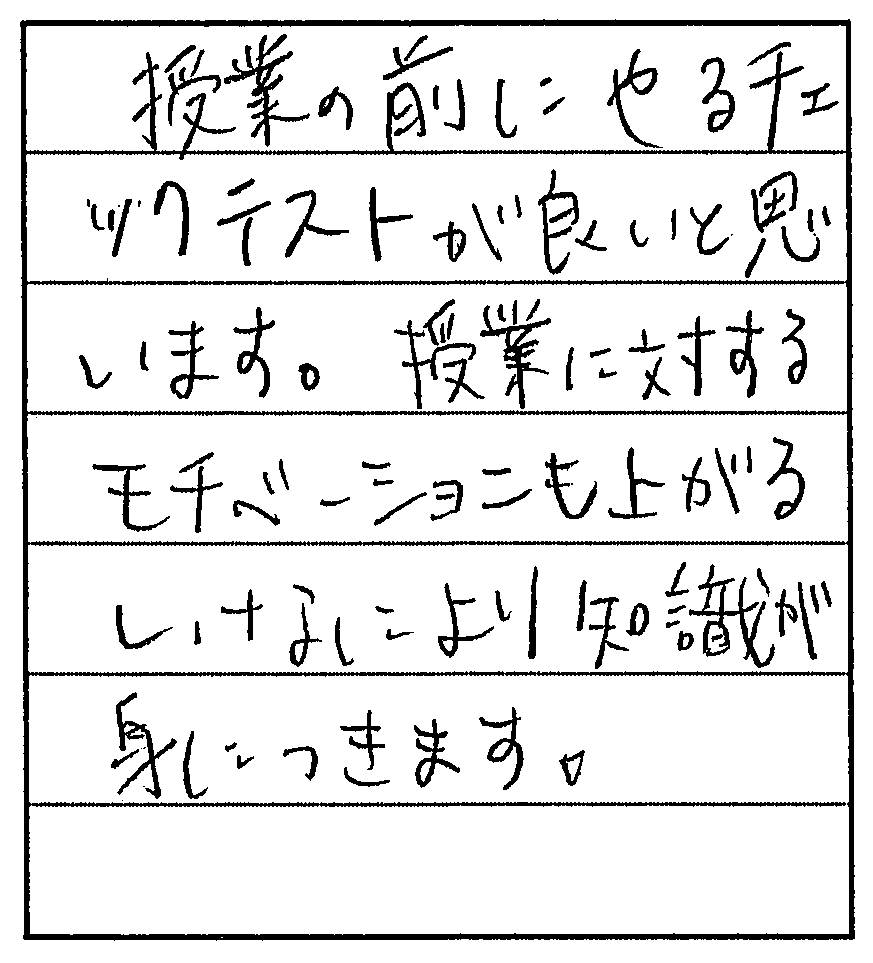 授業の前にやるチェ
ックテストが良いと思
います。授業に対する
モチベーションも上がる
し、なにより知識が
身につきます。